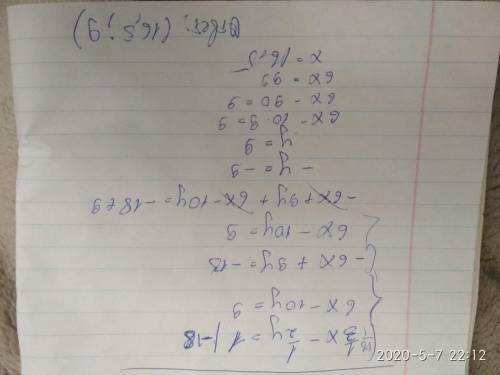 1/3 x - 1/2 y = 1 | -18
6x - 10y = 9
-6x + 9y = -18
6x - 10y = 9
-6x + 9y + 6x - 10y = -18 + 9
-y = -9
y = 9
6x - 10·9 = 9
6x - 90 = 9
6x = 99
x = 16,5
Ответ: (16,5; 9)
2020-5-7 22:12